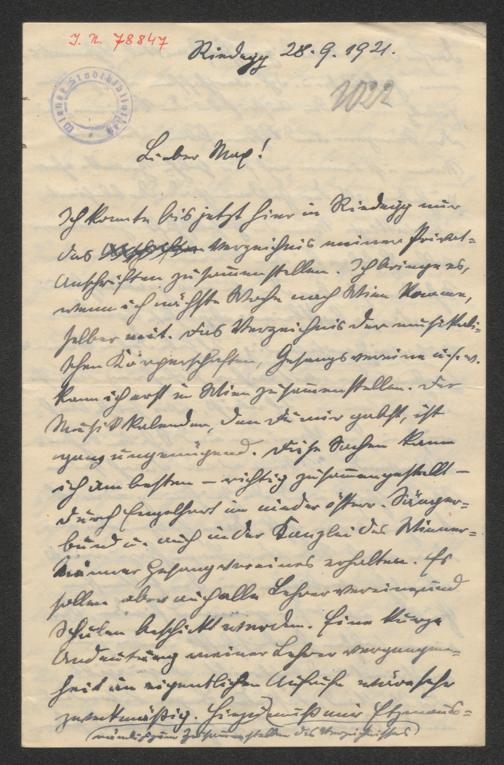 I. N. 78847
Riedegg 28.9.1921.
Wiener Stadtbibliothek
1022
Lieber Max!
Ich konnte bis jetzt hier in Riedegg nur
das Verzeichnis meiner Privat-
Anschriften zusammenstellen. Ich bringe es,
wenn ich nächste Woche nach Wien komme,
selber mit. Das Verzeichnis der musikali-
schen Körperschaften, Gesangsvereine u.s.w.
kann ich erst in Wien zusammenstellen. Der
Musikkalender, den Du mir gabst, ist
ganz ungenügend. Diese Sachen kann
ich am besten – richtig zusammengestellt –
durch Engelhart im nieder österr. Sänger-
bund u. auch in der Kanzlei des Wiener-
Männer Gesangvereines erhalten. Es
sollen aber auch alle Lehrervereine und
Schulen beschickt werden. Eine kurze
Andeutung meiner Lehrer vergangen-
heit im eigentlichen Aufrufe wäre sehr
zweckmäßig. Hiezu muß mir
(nämlich zum Zusammenstellen des Verzeichnisses)